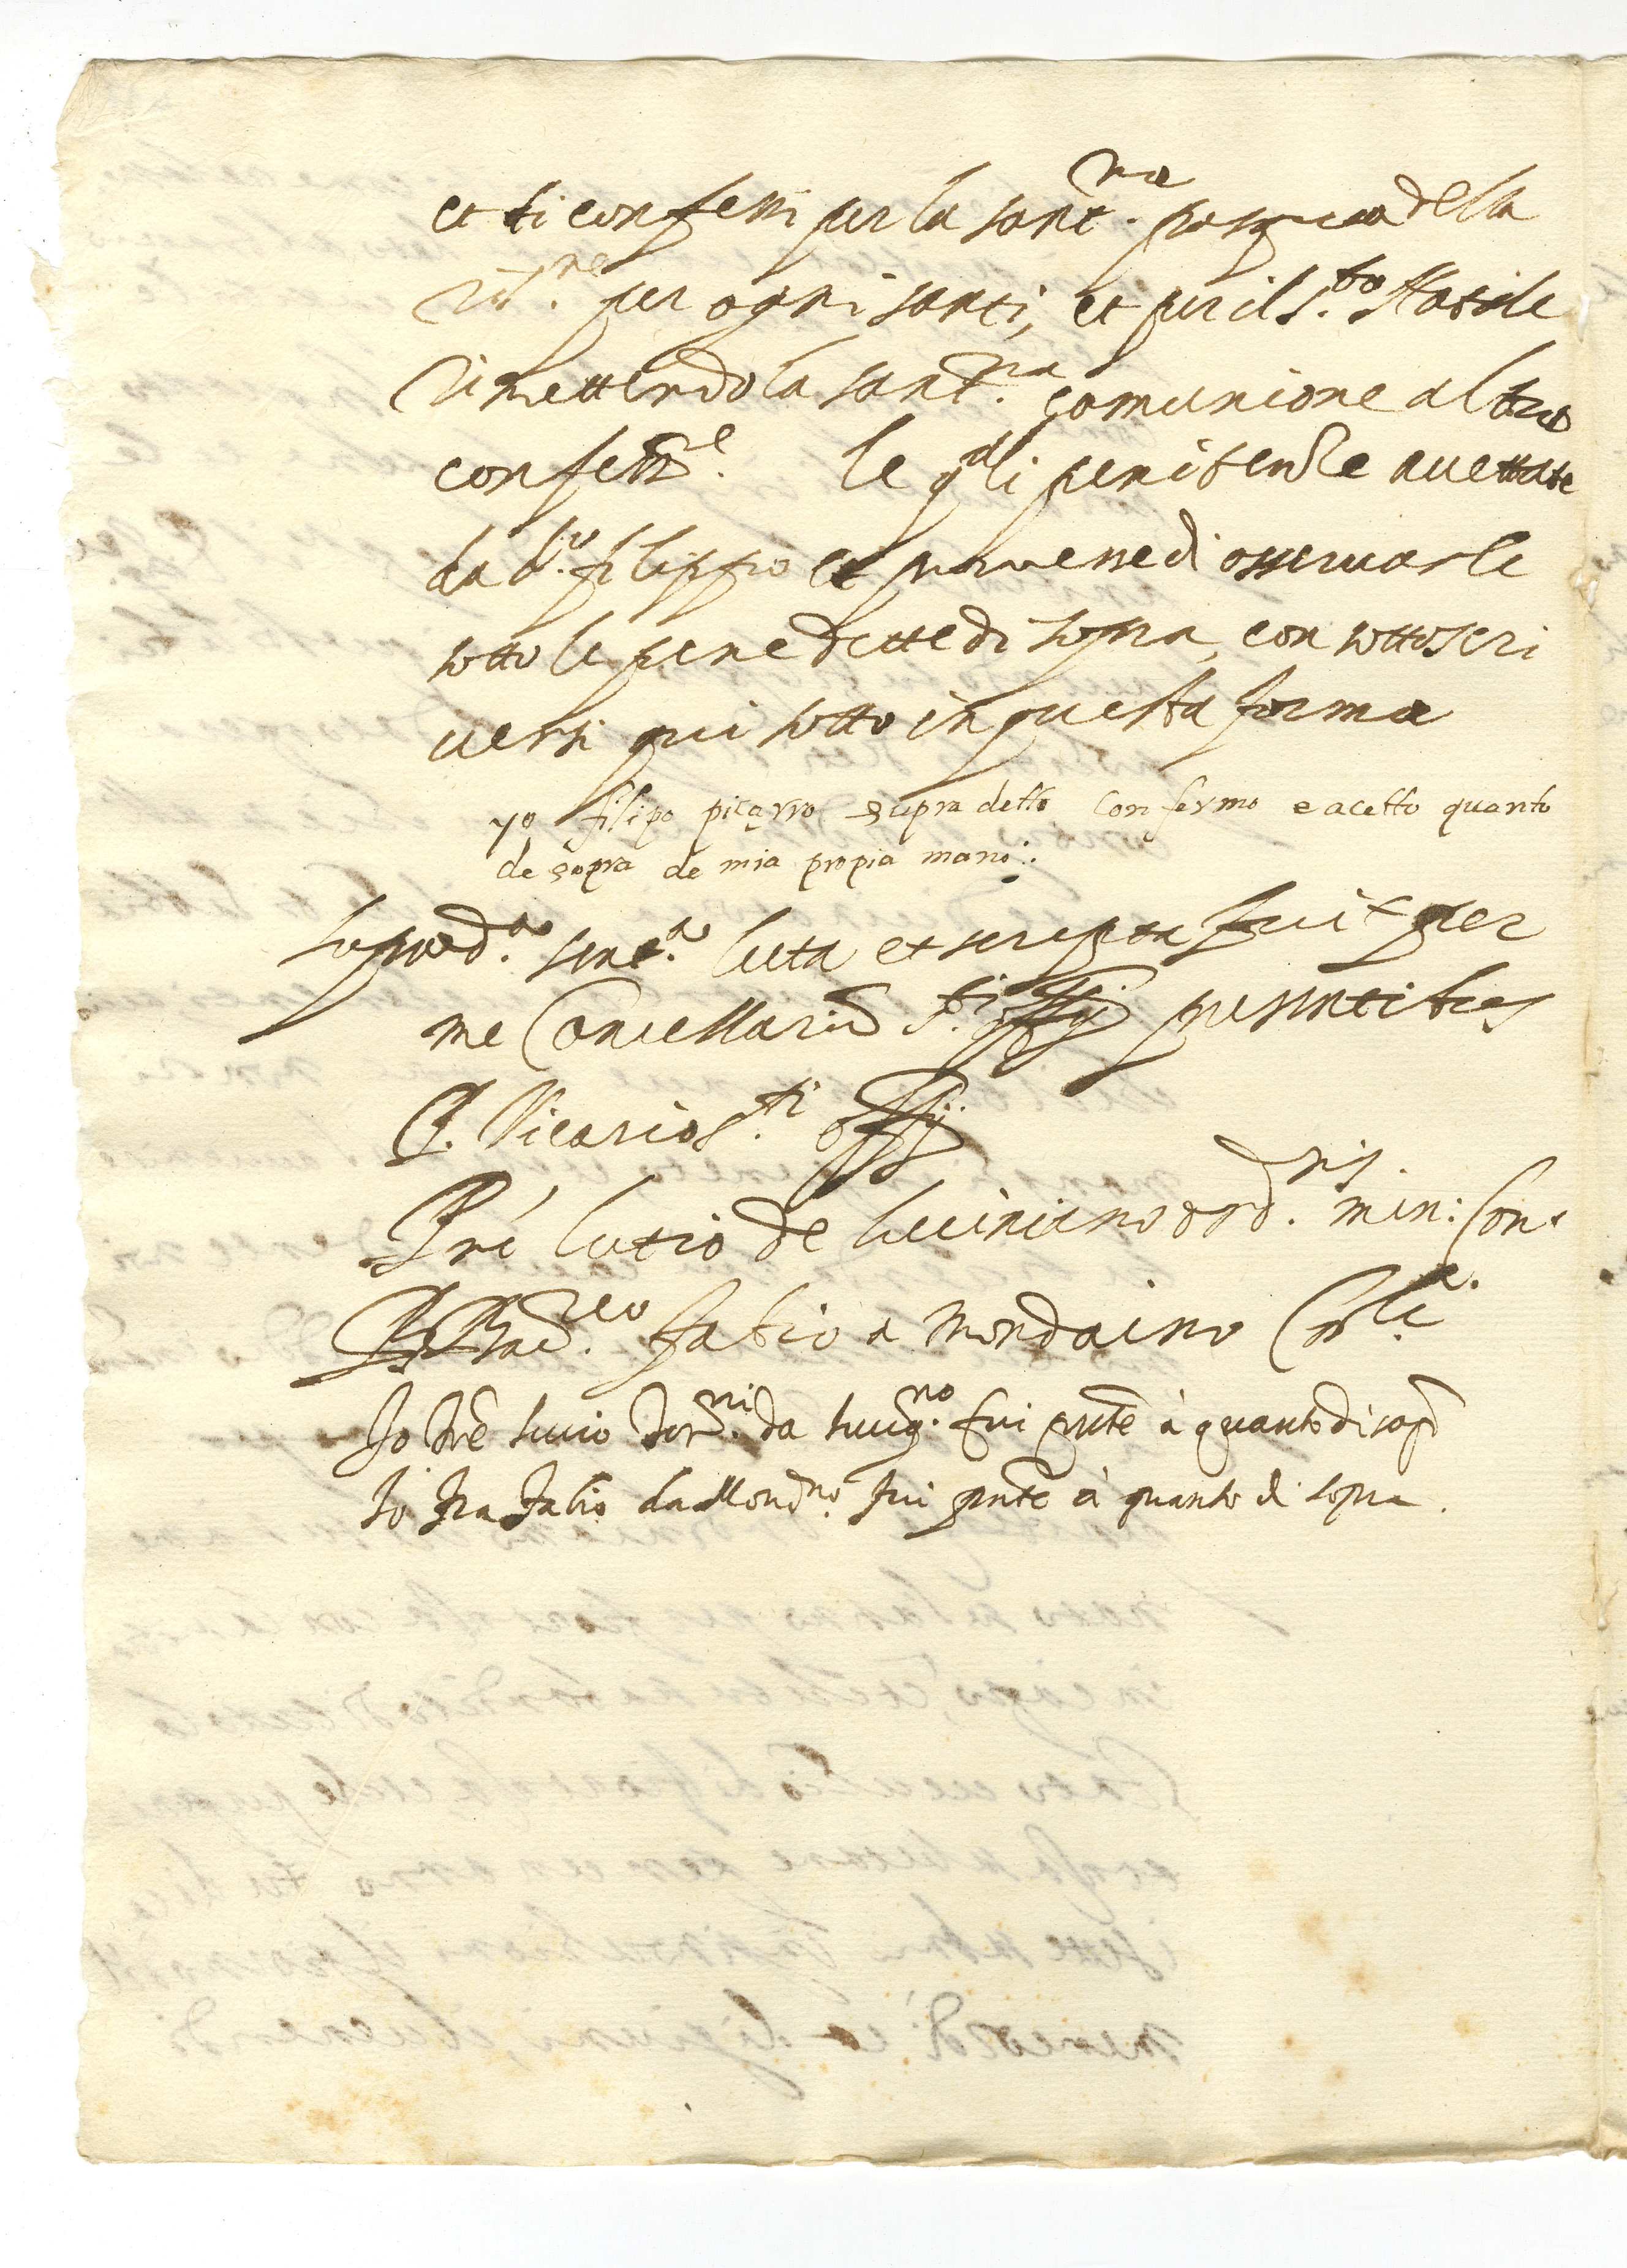 et ti confessi per la sant.ma pasqua della
Ris.ne per ogni santi, et per il S.to Natale
rimettendo la sant.ma comunione al tuo
confess.e le q.ali penitenze accettate
da d.o filippo et promesse di osservarle
sotto le pene dette di sopra, con sottoscri
versi qui sotto in questa forma
yo filipo picarro supra detto Confermo e acetto quanto
de sopra de mia propia mano:
suprad.a sent.a lecta et scripta fuit per
me Cancellariũ S.ti offij presentibus
P. Vicario S.ti offij
Frẽ lutio de luciniano ord.nis. min: Con.
fabio a Mondaino
Io frẽ lucio da lucig.no fui pñte à quanto di sop.
Io fra fabio da Mond.no fui pñte à quanto di sopra.